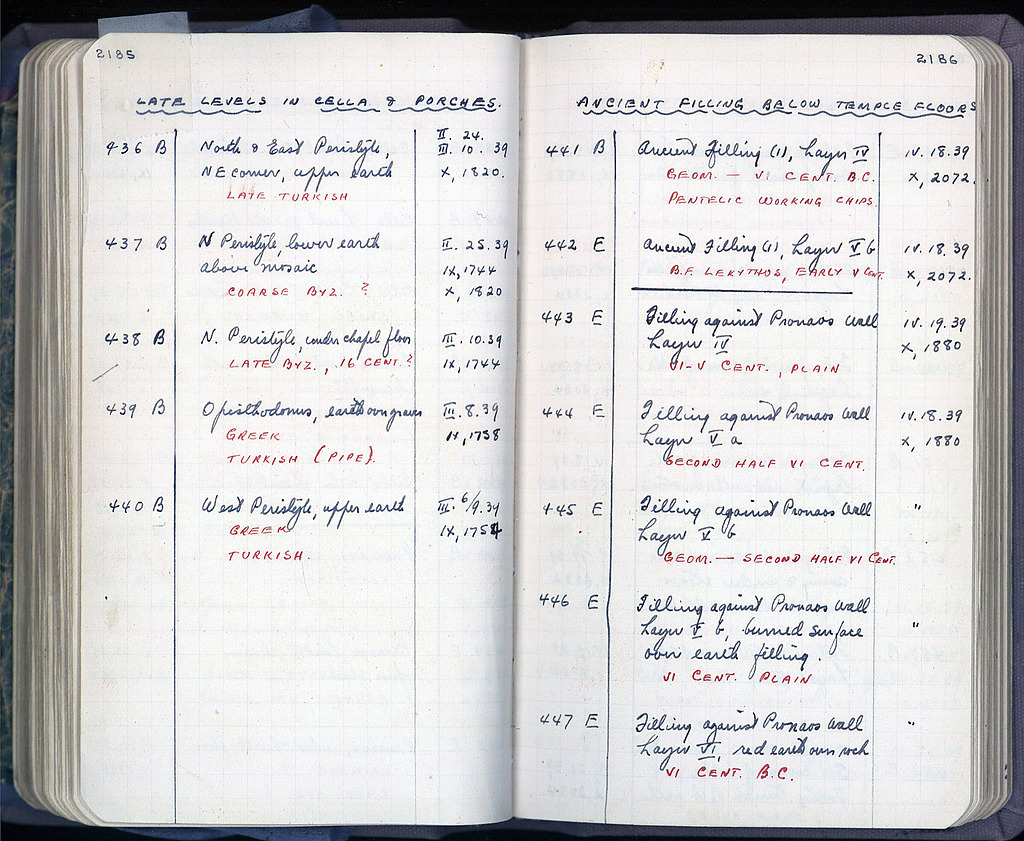 2185
LATE LEVELS IN CELLA & PORCHES.
436 B North & East Peristyle, II. 24.
III. 10. 39
NE corner, upper earth X, 1820.
LATE TURKISH
437 B N Peristyle, lower earth II. 25. 39
above mosaic IX, 1744
COARSE BYZ. ? X, 1820
438 B N. Peristyle, under chapel floor III. 10. 39
LATE BYZ., 16 CENT. ? IX, 1744
439 B Opisthodomus, earth over graves III. 8. 39
GREEK IX, 1758
TURKISH (PIPE).
440 B West Peristyle, upper earth III. 6/9. 39
GREEK IX, 1754
TURKISH.
2186
ANCIENT FILLING BELOW TEMPLE FLOORS
441 B Ancient Filling (1), Layer IV IV. 18. 39
GEOM. — VI CENT. B.C. X, 2072.
PENTELIC WORKING CHIPS.
442 E Ancient Filling (1), Layer V b IV. 18. 39
B.F. LEKYTHOS, EARLY V CENT. X, 2072.
443 E Filling against Pronaos Wall IV. 19. 39
Layer IV X, 1880
VI-V CENT., PLAIN
444 E Filling against Pronaos Wall IV. 18. 39
Layer V a X, 1880
SECOND HALF VI CENT.
445 E Filling against Pronaos Wall "
Layer V b
GEOM. — SECOND HALF VI CENT.
446 E Filling against Pronaos Wall
Layer V b, burned surface "
over earth filling.
VI CENT. PLAIN
447 E Filling against Pronaos Wall "
Layer VI, red earth over rock
VI CENT. B.C.